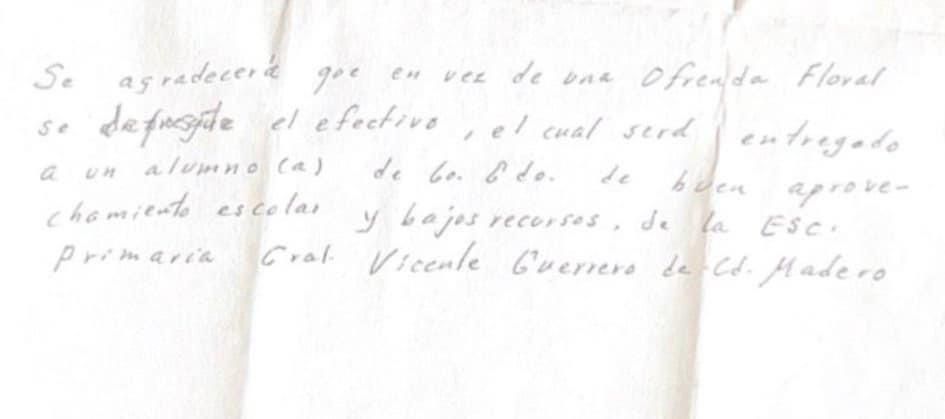 Se agradecerá que en vez de una Ofrenda Floral
se deposite el efectivo, el cual será entregado
a un alumno (a) de 6o. Gdo. de buen aprove-
chamiento escolar y bajos recursos, de la Esc.
Primaria Gral. Vicente Guerrero de Cd. Madero